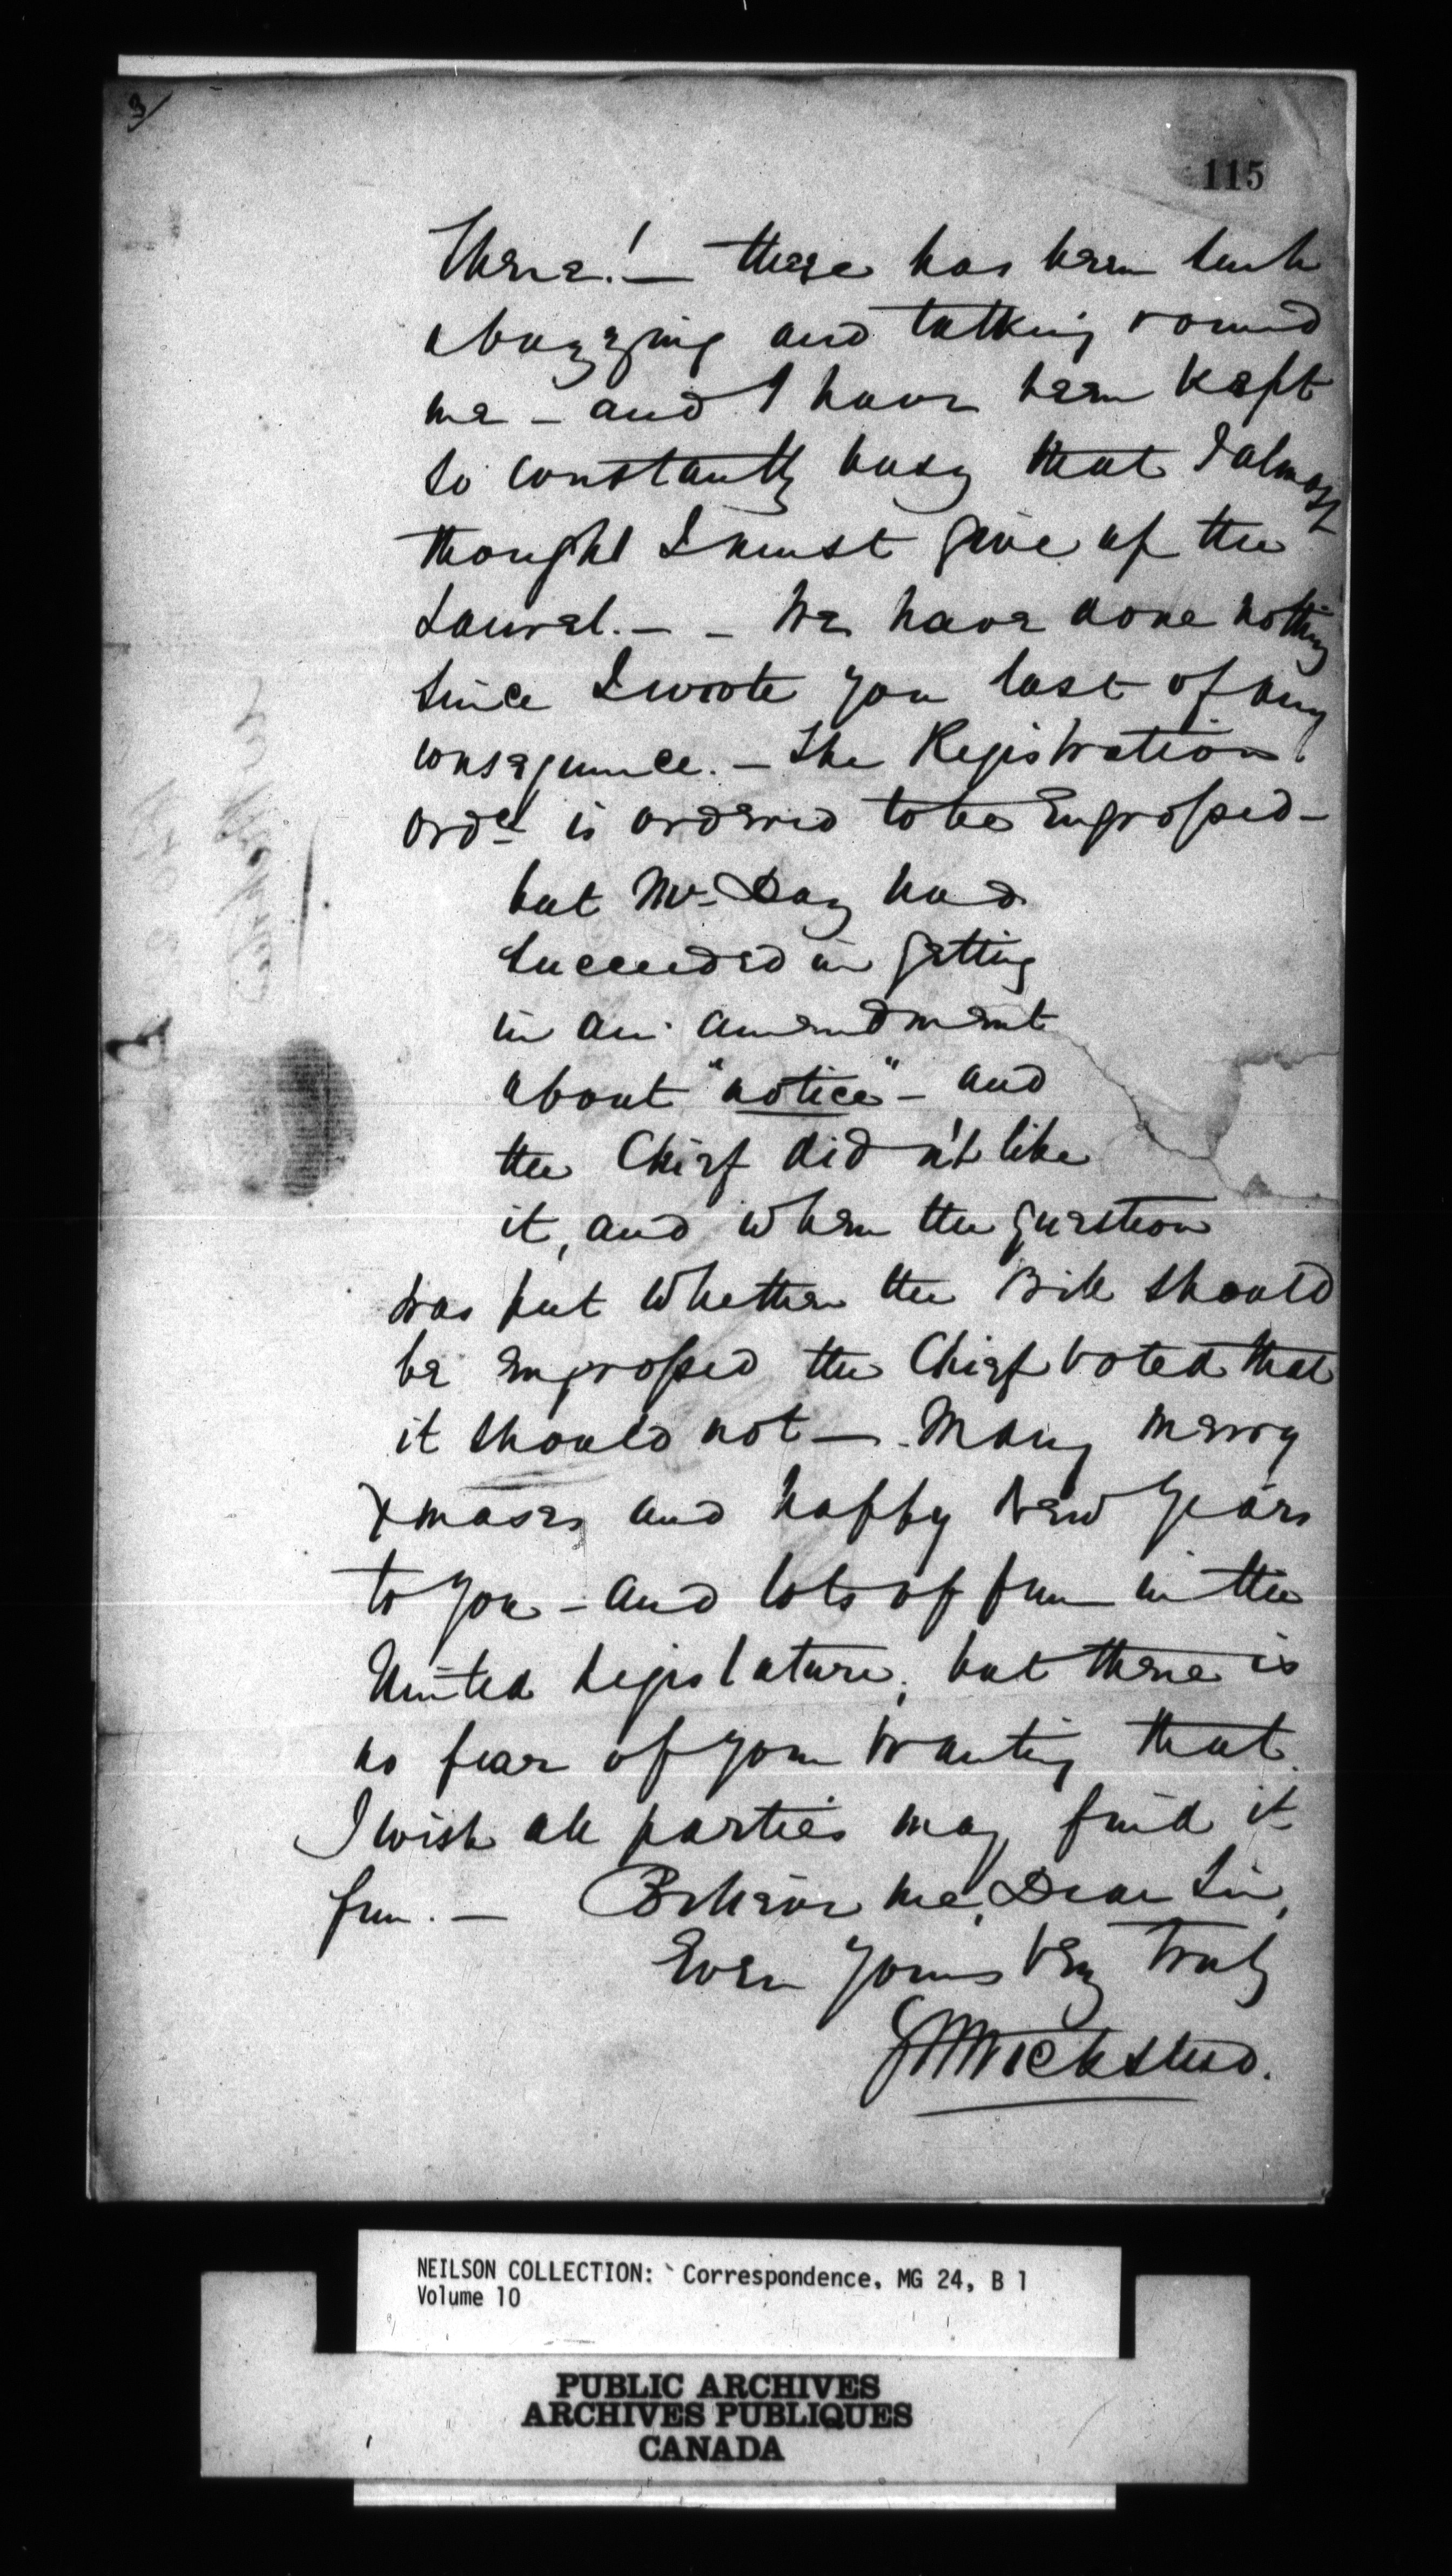 3/
115
There! — there has been such
a buzzing and talking round
me – and I have been kept
so constantly busy that I almost
thought I must give up the
Laurel. — – We have done nothing
since I wrote you last of any
consequence. – The Registration
Ordce is ordered to be Engrossed –
but Mr. Day had
succeeded in getting
in an amendment
about "notice" – and
the Chief did n't like
it, and when the question
was put whether the Bill should
be engrossed the Chief voted that
it should not —. Many merry
Xmases and happy New Years
to you – and lots of fun in the
United Legislature, but there is
no fear of your wanting that.
I wish all parties may find it
fun. — Believe me, Dear Sir,
Ever yours very truly
GWWicksteed.
NEILSON COLLECTION: Correspondence, MG 24, B 1
Volume 10
PUBLIC ARCHIVES
ARCHIVES PUBLIQUES
CANADA